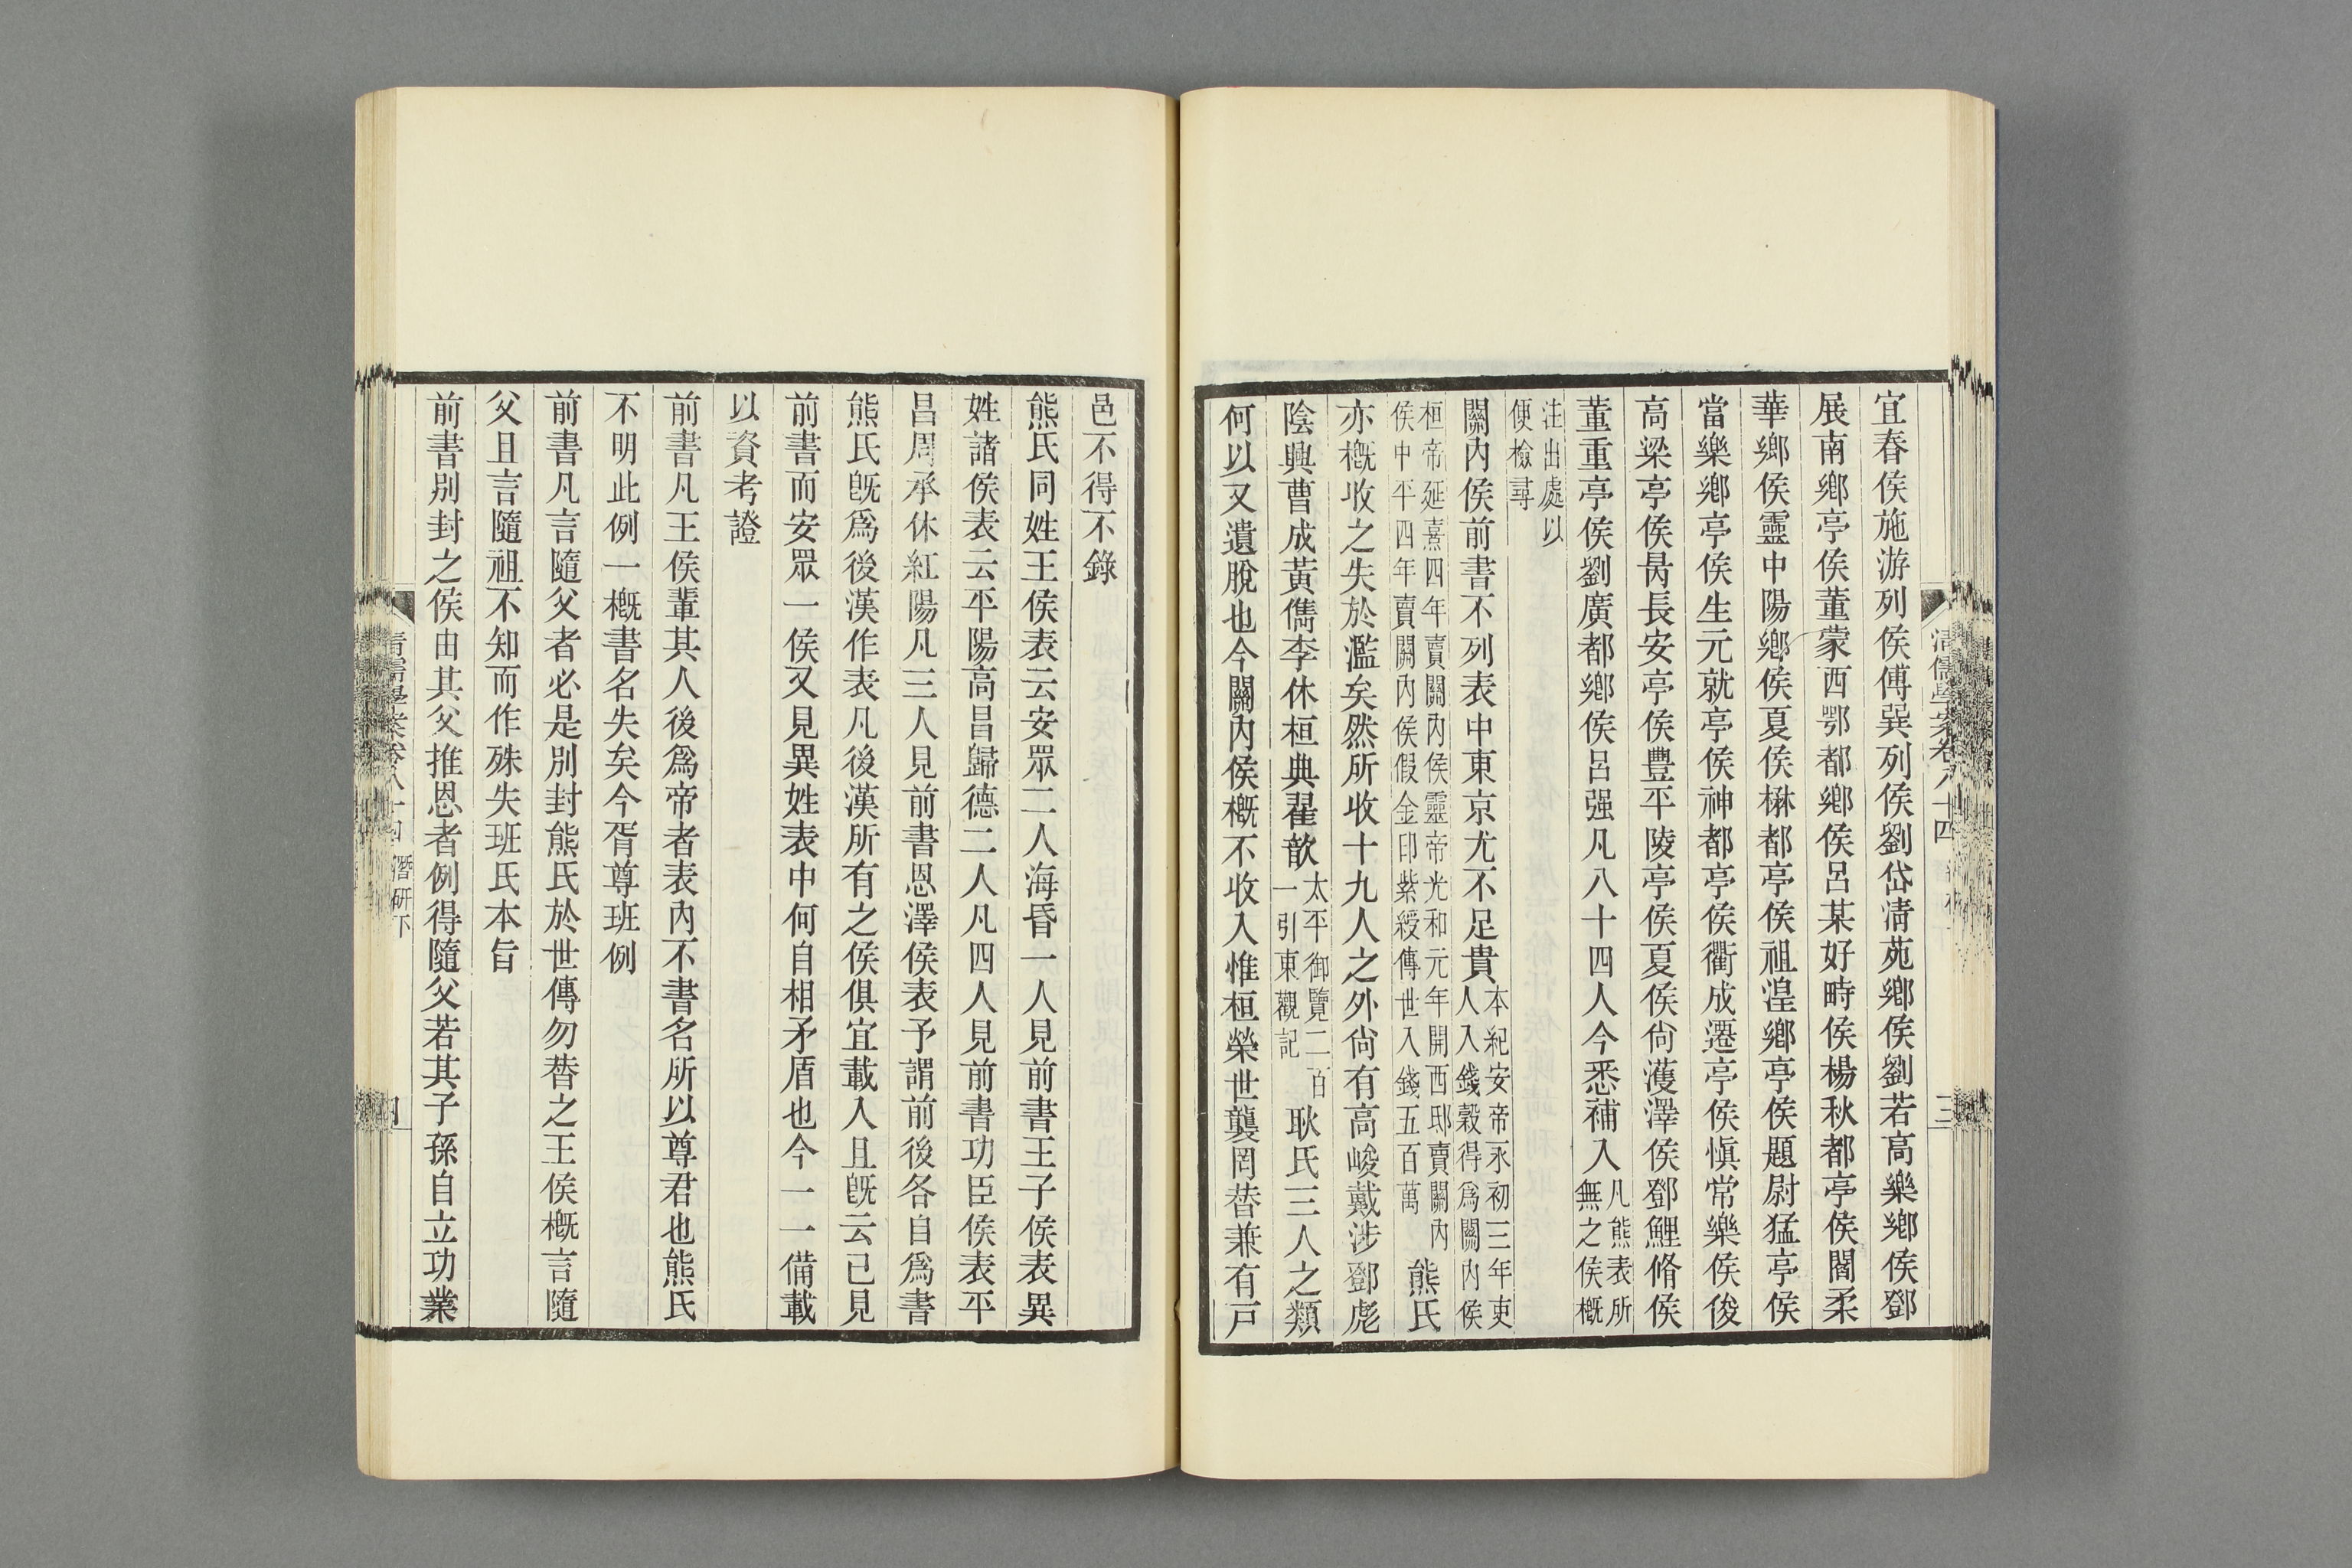 宜春侯施游列侯傅巽列侯劉岱淸苑鄕侯劉若高樂鄕侯鄧
展南鄕亭侯董蒙西鄂都鄕侯呂某好畤侯楊秋都亭侯閻柔
華鄕侯靈中陽鄕侯夏侯楙都亭侯祖湟鄕亭侯題尉猛亭侯
當樂鄕亭侯生元就亭侯神都亭侯衢成遷亭侯愼常樂侯俊
高梁亭侯昺長安亭侯豐平陵亭侯夏侯尙濩澤侯鄧鯉脩侯
董重亭侯劉廣都鄕侯呂强凡八十四人今悉補入凡熊表所
無之侯概
注出處以
便檢尋
關內侯前書不列表中東京尤不足貴本紀安帝永初三年吏
人入錢穀得爲關內侯
桓帝延熹四年賣關內侯靈帝光和元年開西邸賣關內
侯中平四年賣關內侯假金印紫綬傳世入錢五百萬熊氏
亦槪收之失於濫矣然所收十九人之外尙有高峻戴涉鄧彪
陰興曹成黃儁李休桓典翟歆太平御覽二百
一引東觀記耿氏三人之類
何以又遺脫也今關內侯槪不收入惟桓榮世襲罔替兼有戸
淸儒學案卷八十四
三
邑不得不錄
熊氏同姓王侯表云安眾二人海昏一人見前書王子侯表異
姓諸侯表云平陽高昌歸德二人凡四人見前書功臣侯表平
昌周承休紅陽凡三人見前書恩澤侯表予謂前後各自爲書
熊氏旣爲後漢作表凡後漢所有之侯俱宜載入且旣云已見
前書而安眾一侯又見異姓表中何自相矛盾也今一一備載
以資考證
前書凡王侯輩其人後爲帝者表內不書名所以尊君也熊氏
不明此例一槪書名失矣今胥尊班例
前書凡言隨父者必是別封熊氏於世傳勿替之王侯槪言隨
父且言隨祖不知而作殊失班氏本旨
前書別封之侯由其父推恩者例得隨父若其子孫自立功業
淸儒學案卷八十四 潛研下
四